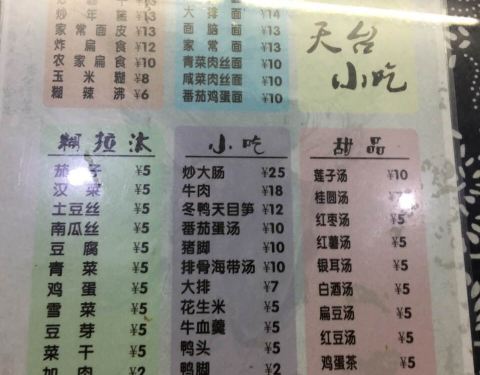 炒 年 糕 ¥12
家 常 面 皮 ¥13
炸 扁 食 ¥12
农 家 扁 食 ¥10
玉 米 糊 ¥8
糊 辣 沸 ¥6
大 排 面 ¥14
面 脑 面 ¥13
家 常 面 ¥13
青菜肉丝面 ¥10
咸菜肉丝面 ¥10
番茄鸡蛋面 ¥10
天台
小吃
糊 拉 汰
茄 子 ¥5
汉 菜 ¥5
土豆丝 ¥5
南瓜丝 ¥5
豆 腐 ¥5
青 菜 ¥5
鸡 蛋 ¥5
雪 菜 ¥5
豆 芽 ¥5
菜 干 ¥5
加 肉 ¥2
小 吃
炒大肠 ¥25
牛肉 ¥18
冬鸭天目笋 ¥12
番茄蛋汤 ¥10
猪脚 ¥10
排骨海带汤 ¥10
大排 ¥7
花生米 ¥5
牛血羹 ¥5
鸭头 ¥5
鸭脚 ¥2
甜 品
莲子汤 ¥10
桂圆汤
红枣汤 ¥5
红薯汤 ¥5
银耳汤 ¥5
白酒汤 ¥5
扁豆汤 ¥5
红豆汤 ¥5
鸡蛋茶 ¥5